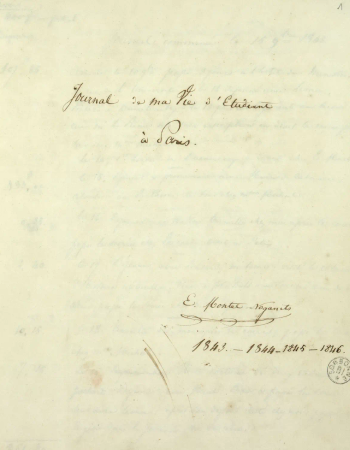 1
Journal de ma Vie d'Etudiant
à Paris.
E. Montet
1843. – 1844 – 1845 – 1846.